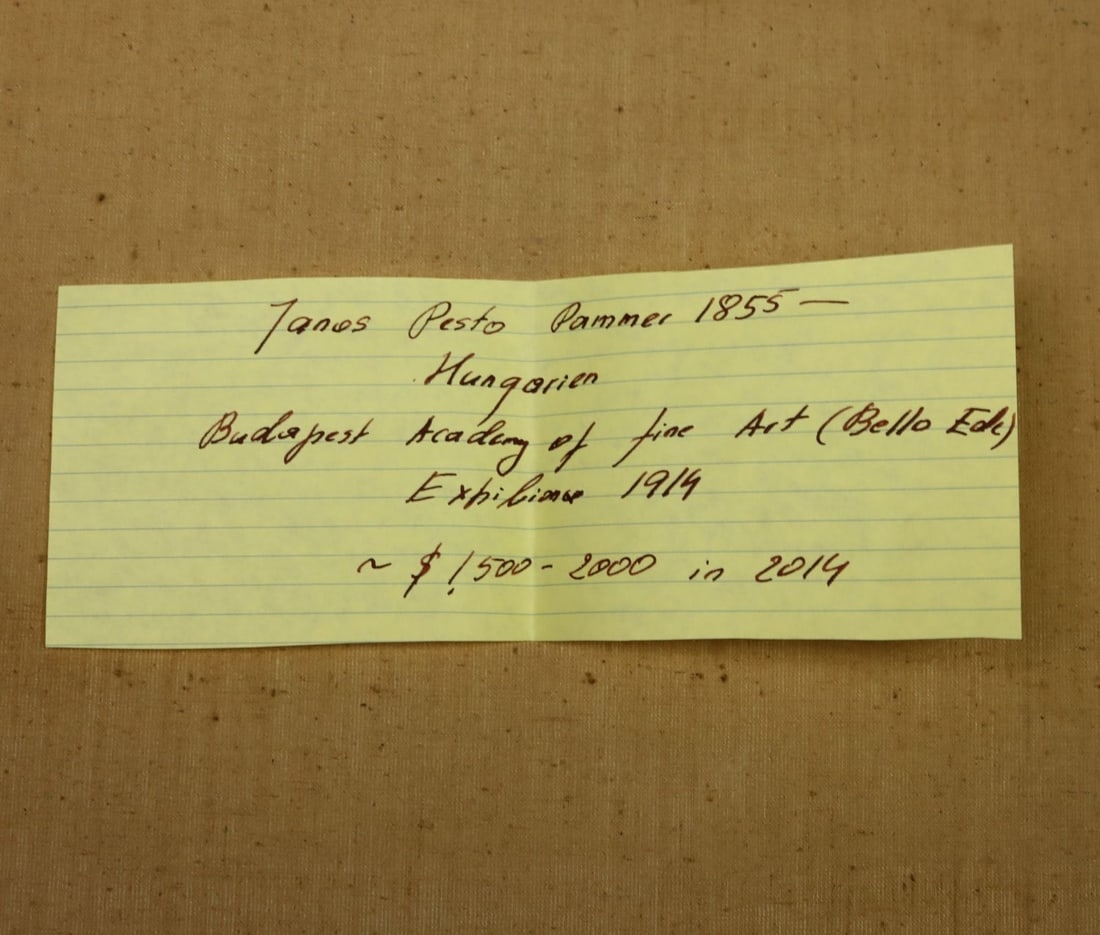 Janos Pesto Pammer 1855 —
Hungarien
Budapest Academy of fine Art (Bello Ede)
1914
~ $ 1,500 - 2000 in 2014